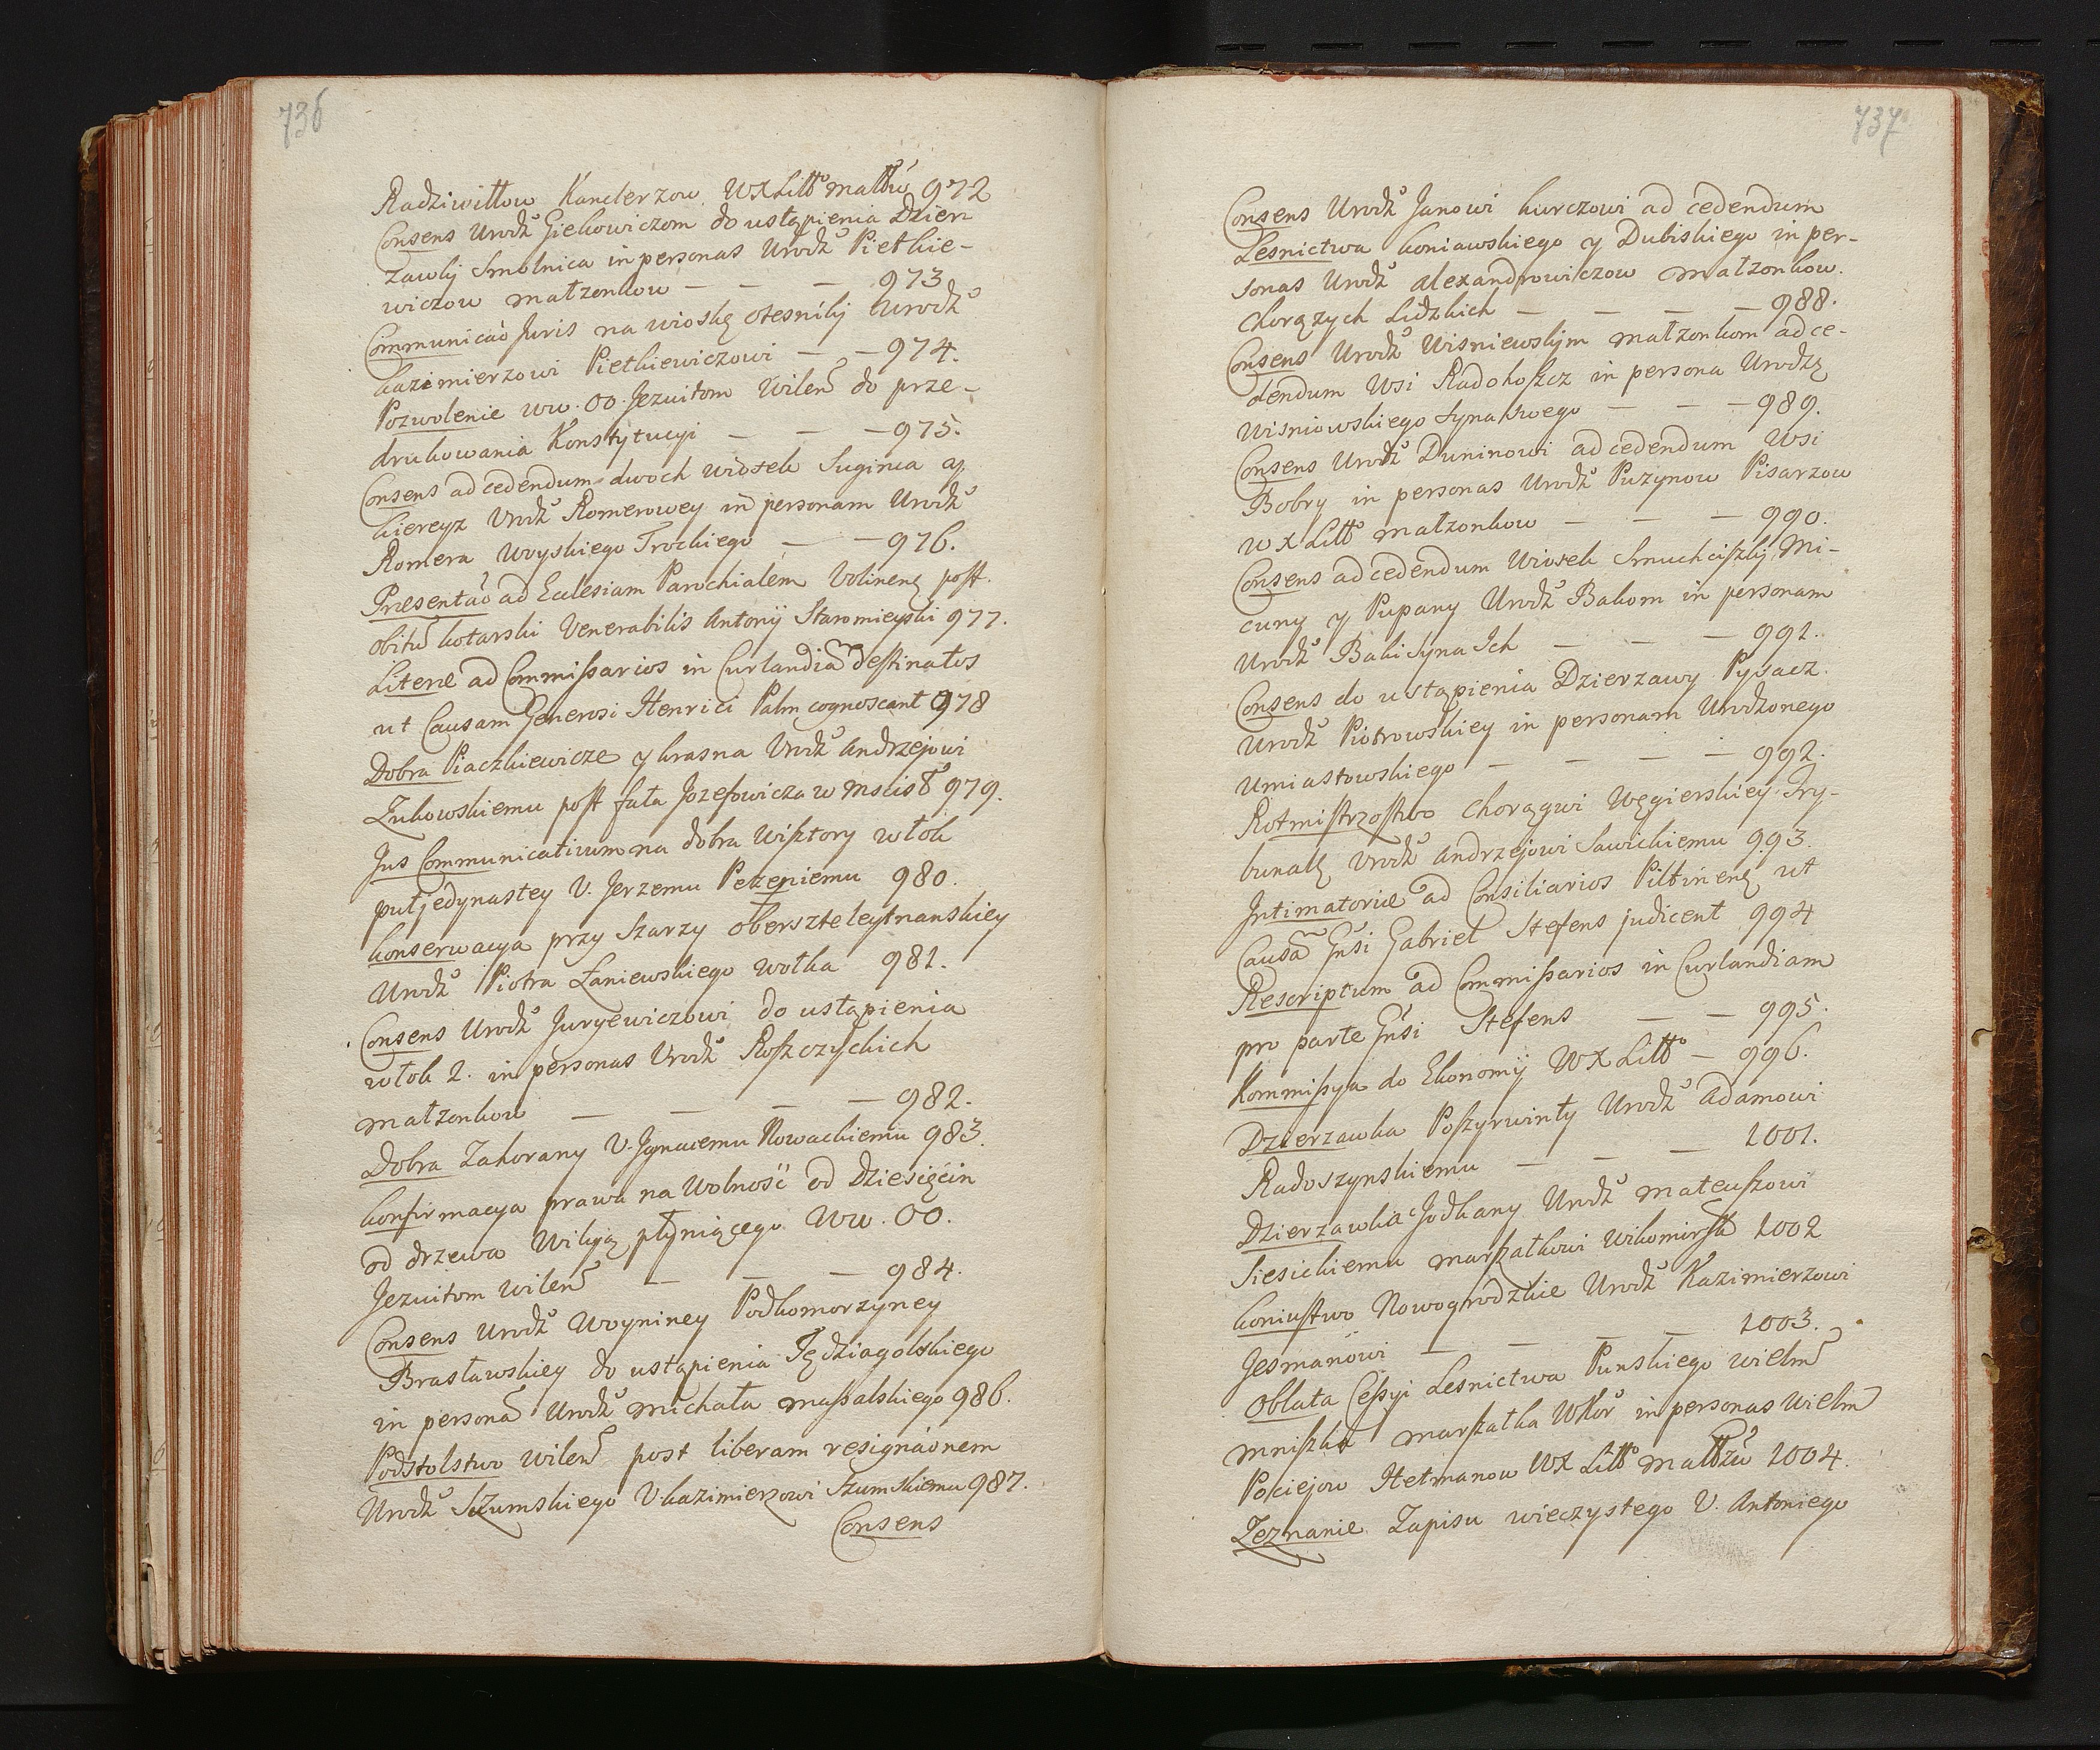 736
Radziwiłłow Kanclerzow WXLitt małżw 972
Consens Urodz Giekowiczom do ustąpienia Dzier
zawky Smolnica in personas Urodz Pietkie-
wiczow małżonkow — — — 973
Communicao Juris na wioskę Oleśniky Urodz
Kazimierzowi Pietkiewiczowi — — 974.
Pozwolenie ww. OO. Jezuitom Wilen do prze-
drukowania Konstytucyi — — — 975.
Consens ad cedendum dwoch wiosek Suginia y
Kiereyz Urodz Romerowey in personam Urodz
Romera Woyskiego Trockiego — — 976.
Præsentao ad Ecclesiam Parochialem Volinens post
obitu Kotarski Venerabilis Antonij Staromieyski 977.
Literæ ad Commissarios in Curlandia destinatos
ut Causam Generosi Henrici Palm cognoscant 978
Dobra Piaczkiewicze y Krasna Urodz Andrzejowi
Zukowskiemu post fata Jozefowicza w Mscisł 979.
Jus Communicativum na dobra Wisztory włok
pułjedynastey U. Jerzemu Petzeniemu 980.
Konserwacya przy Szarzy Oberszteleytnanskiey
Urodz Piotra Łaniewskiego Wołka 981.
Consens Urodz Juryewiczowi do ustąpienia
włok 2. in personas Urodz Roszczyckich
małżonkow — — — — 982.
Dobra Zahorany U. Ignacemu Nowackiemu 983.
Konfirmacya prawa na Wolność od Dziesięcin
od drzewa Wiliją płyniącego Ww. OO.
Jezuitom Wilen — — — 984.
Consens Urodz Woyniney Podkomorzyney
Brasławskiey do ustąpienia Tędziagolskiego
in persona Urodz Michała Massalskiego 986.
Podstolstwo Wilen post liberam resignaonem
Urodz Szumskiego U. Kazimierzowi Szumskiemu 987.
Consens
737
Consens Urodz Janowi Kurczowi ad cedendum
Lesnictwa Koniawskiego y Dubiskiego in per-
sonas Urodz Alexandrowiczow Małzonkow.
Chorążych Lidzkich — — — — 988.
Consens Urodz Wisniewskym małzonkom ad ce-
dendum Wsi Radohoszcz in persona Urodz
Wisniowskiego Syna swego — — — 989.
Consens Urodz Duninowi ad cedendum Wsi
Bobry in personas Urodz Puzynow Pisarzow
W X Litt małzonkow — — — 990.
Consens ad cedendum Wiosek Smuchciszky Mi-
cuny y Pupany Urodz Bakom in personam
Urodz Baki Syna Ich — — — 991.
Consens do ustąpienia Dzierzawy Pysacz
Urodz Piotrowskiey in personam Urodzonego
Umiastowskiego — — — — 992.
Rotmistrzostwo Chorągwi Węgierskiey Try-
bunals Urodz Andrzejowi Sawickiemu 993.
Intimatoriæ ad Consiliarios Piltinens ut
Causa Gnsi Gabriel Stefens judicent 994
Rescriptum ad Commissarios in Curlandiam
pro parte Gnsi Stefens — — 995.
Kommissya do Ekonomij WX Litt — 996.
Dzierzawka Poszyrwinty Urodz Adamowi
Radoszynskiemu — — — 1001.
Dzierzawka Jodkany Urodz Mateuszowi
Siesickiemu Marszałkowi Wikomirsk 1002
Koniustwo Nowogrodzkie Urodz Kazimierzowi
Jesmanowi — — — — 1003.
Oblata Cessyi Lesnictwa Punskiego Wielm
Mniszka Marszałka WKor in personas Wielm
Pociejow Hetmanow WX Litt Małżzw 1004.
Zeznanie Zapisu wieczystego U. Antoniego